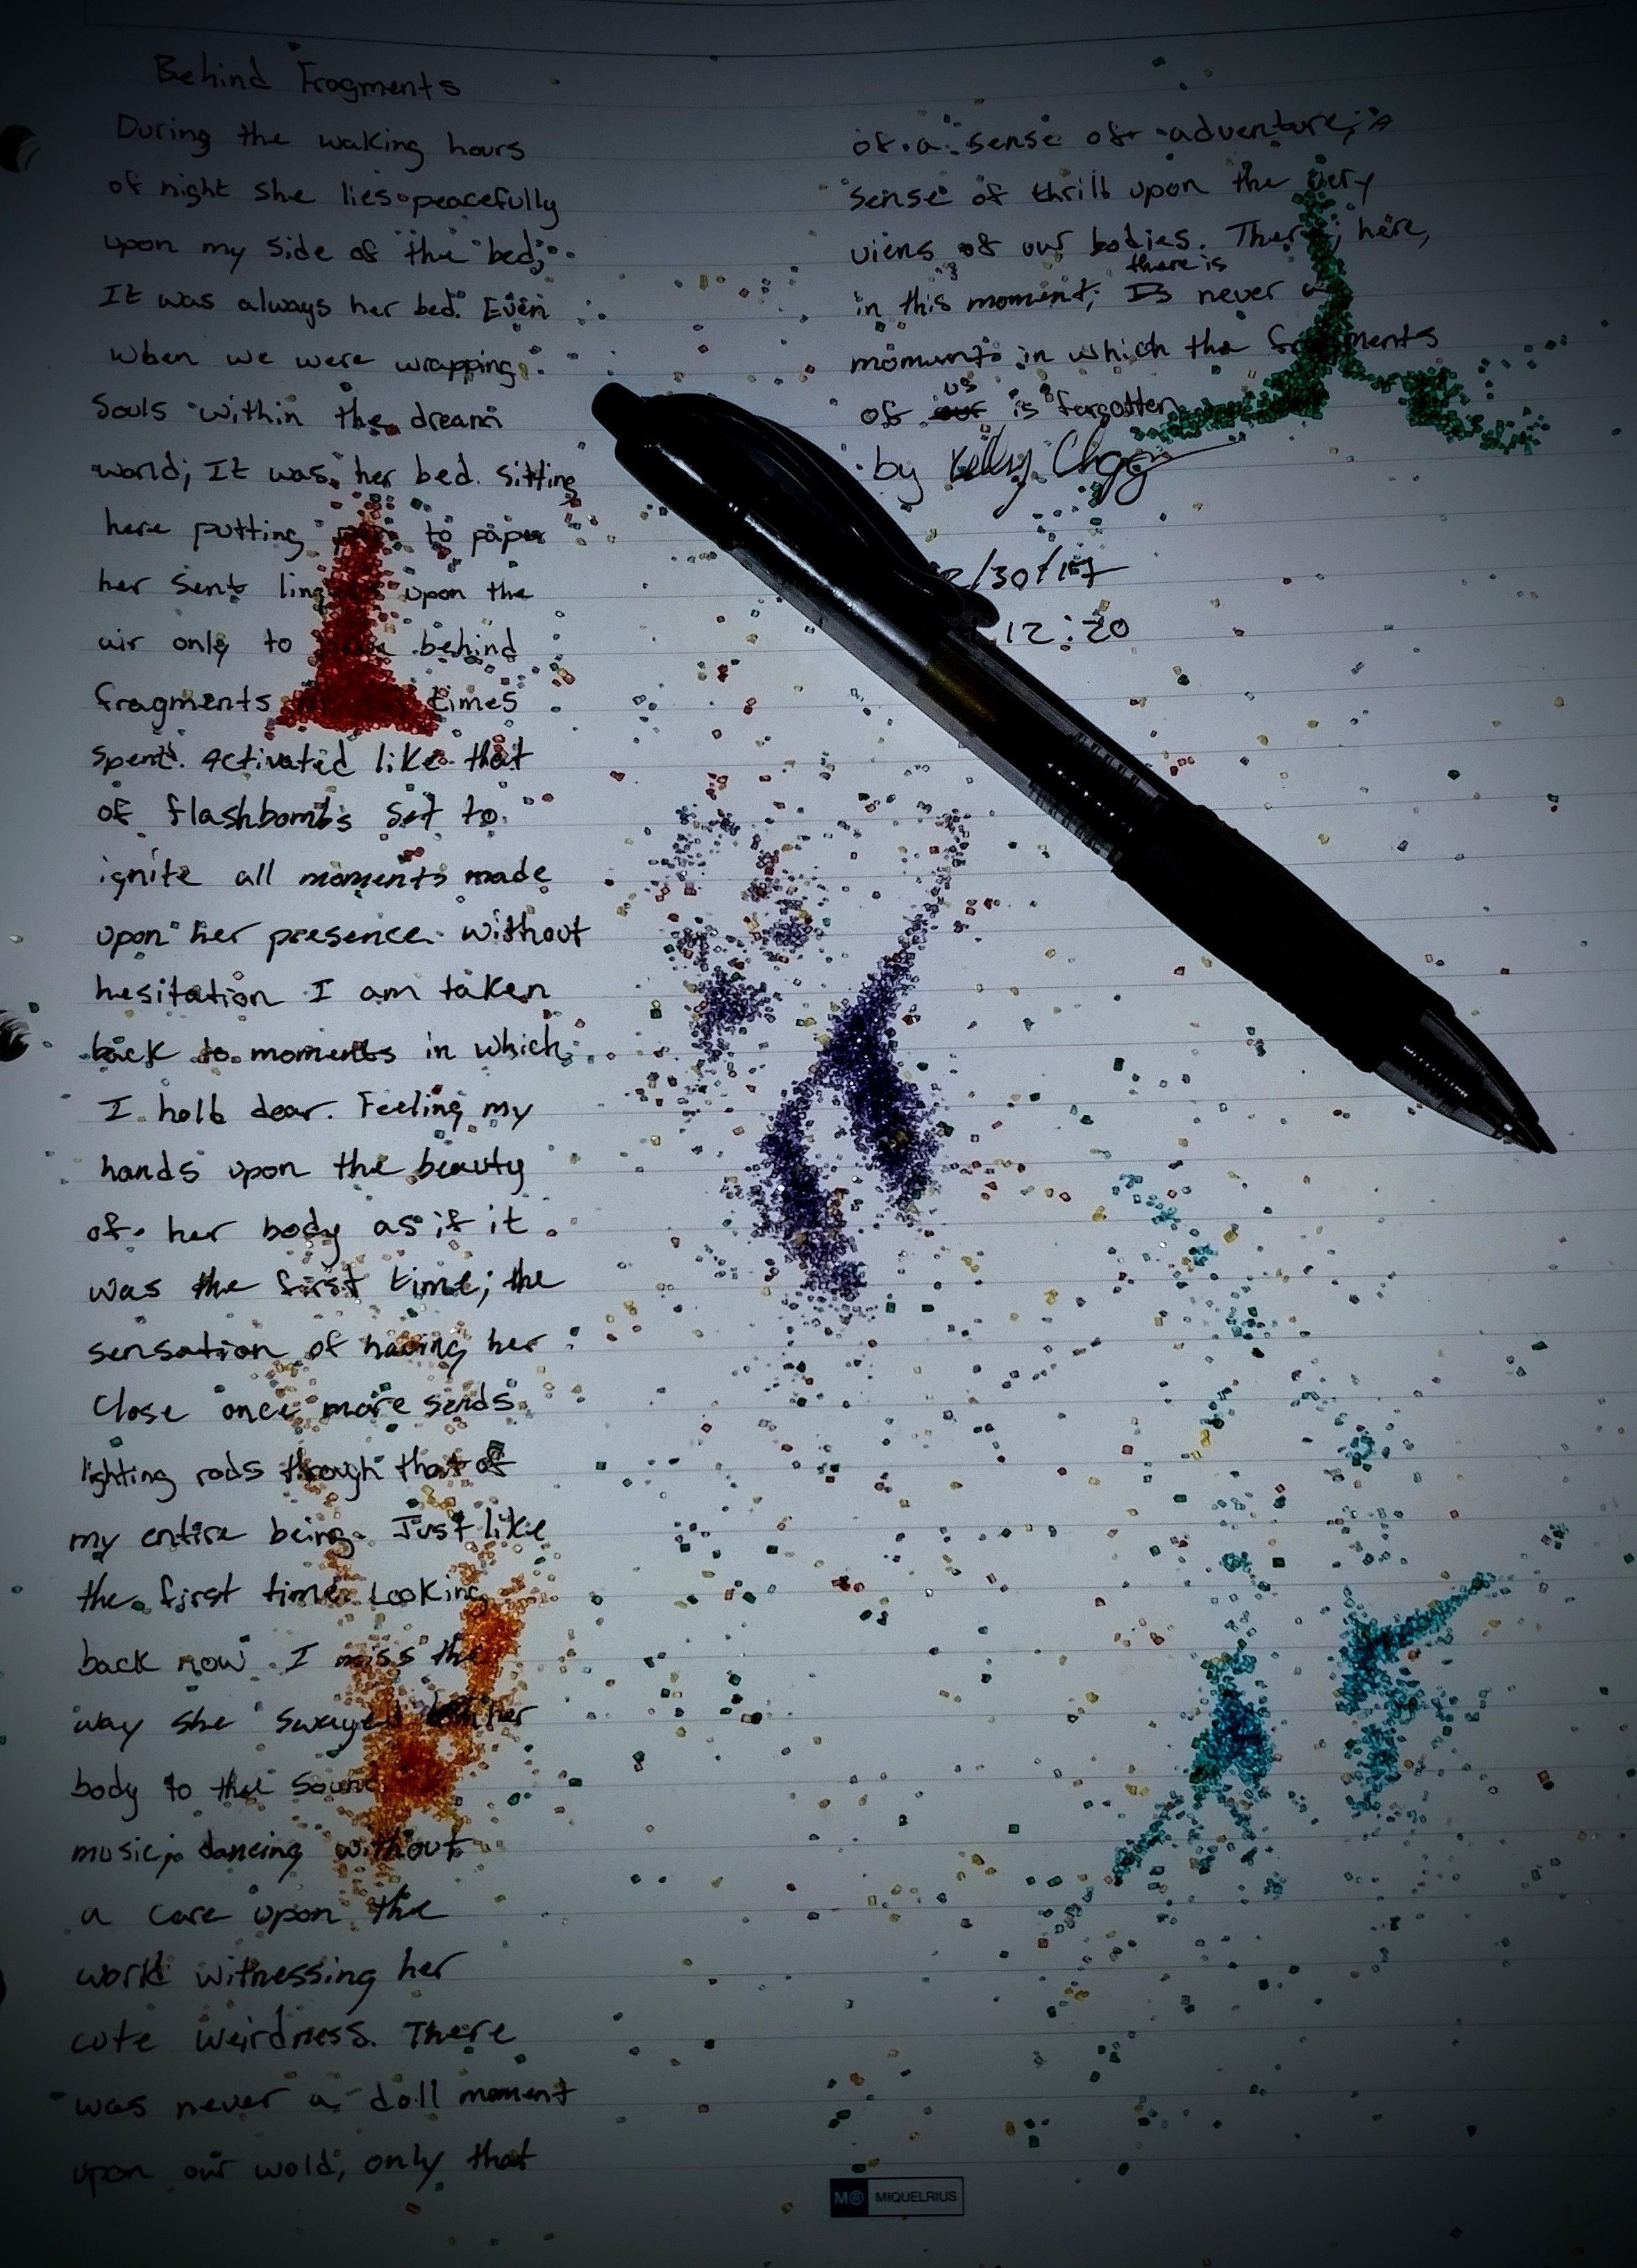 Behind Fragments
During the waking hours
of night she lies peacefully
upon my side of the bed;
It was always her bed. Even
when we were wrapping
souls within the dream
world; It was her bed. sitting
here putting to paper
her sent upon the
air only to behind
fragments times
spent. activated like that
of flashbombs set to
ignite all moments made
upon her presence. without
hesitation I am taken
back to moments in which
I hold dear. Feeling my
hands upon the beauty
of her body as if it
was the first time; the
sensation of having her
close once more sends
lighting rods through that of
my entire being. Just like
the first time. Looking
back now I miss the
way she swayed her
body to the sound
music; dancing without
a care upon the
world witnessing her
cute weirdness. There
was never a doll moment
upon our wold, only that
of a sense of adventure; A
sense of thrill upon the very
viens of our bodies. There; here,
there is
in this moment; Is never a
moment in which the fragments
us
of our is forgotten
by Kelly Clegg
/30/17
12:20
M® MIQUELRIUS